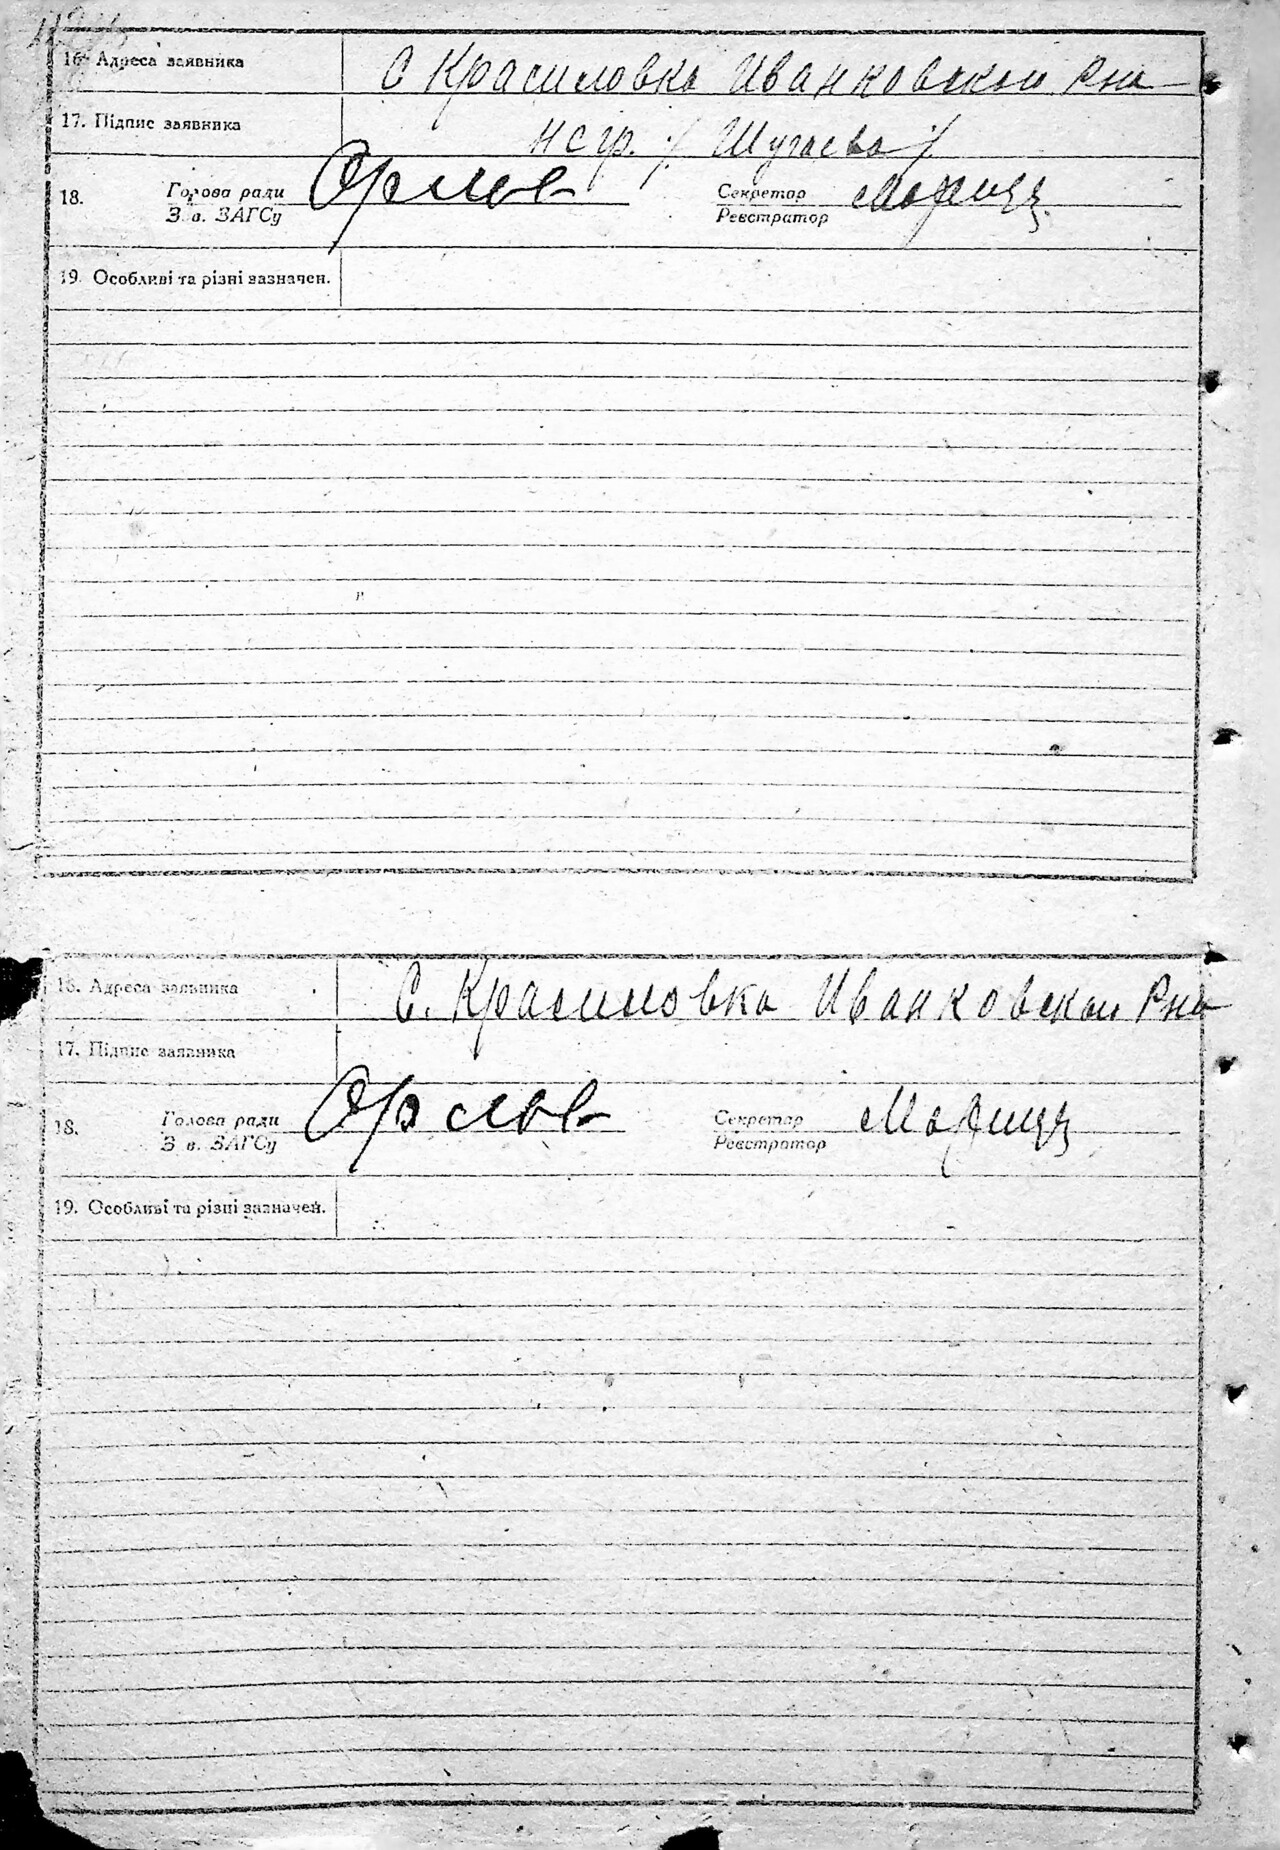 16. Адреса заявника С Красиловка Иванковской Рна
17. Підпис заявника нсгр. / Шугаева /
18. Голова ради Орлов Секретар
З. в. ЗАГСу Реєстратор
19. Особливі та різні зазначен.
16. Адреса заявника С. Красиловка Иванковской Рна
17. Підпис заявника
18. Голова ради Орлов Секретар
З. в. ЗАГСу Реєстратор
19. Особливі та різні зазначен.